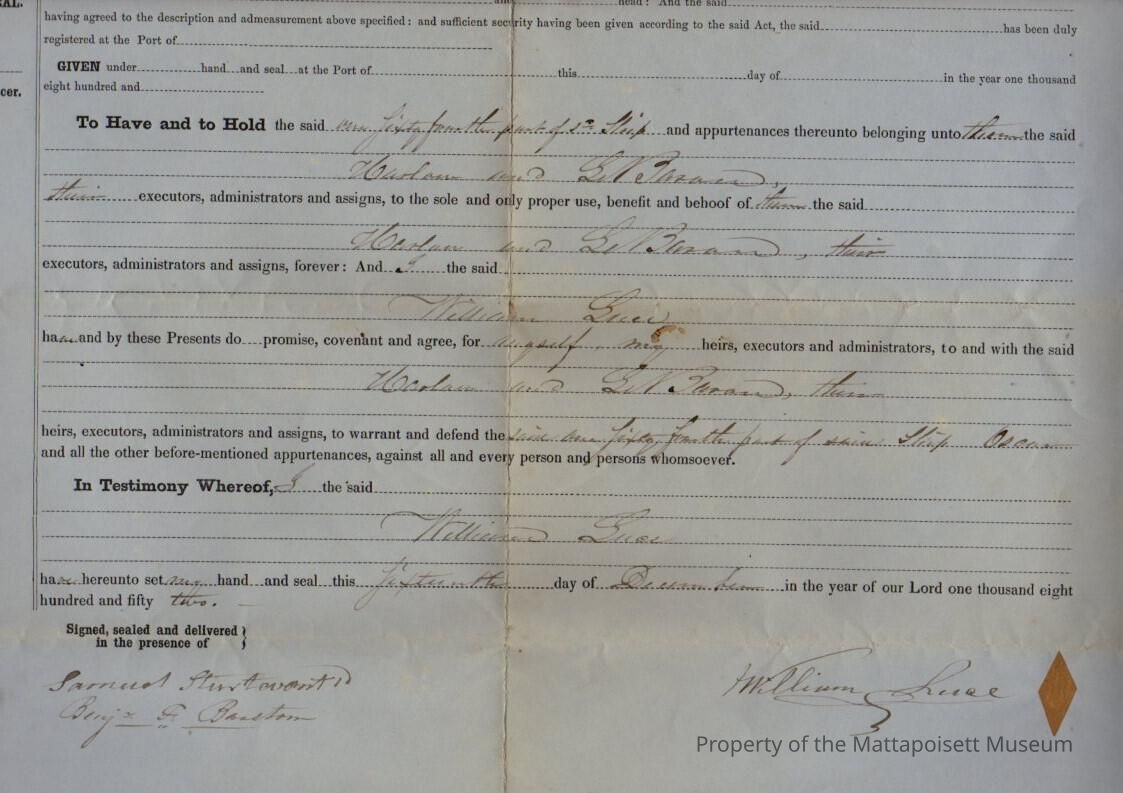 and head: And the said
having agreed to the description and admeasurement above specified: and sufficient security having been given according to the said Act, the said has been duly
registered at the Port of
GIVEN under hand and seal at the Port of this day of in the year one thousand
cer.
eight hundred and
To Have and to Hold the said one sixty fourth part of sd Ship and appurtenances thereunto belonging unto them the said
Harlow and LeBaron,
their executors, administrators and assigns, to the sole and only proper use, benefit and behoof of them the said
Harlow and LeBaron, their
executors, administrators and assigns, forever: And I the said
William Luce
have and by these Presents do promise, covenant and agree, for myself, my heirs, executors and administrators, to and with the said
Harlow and LeBaron, their
heirs, executors, administrators and assigns, to warrant and defend the said one sixty fourth part of said Ship Oscar
and all the other before-mentioned appurtenances, against all and every person and persons whomsoever.
In Testimony Whereof, I the said
William Luce
have hereunto set my hand and seal this day of December in the year of our Lord one thousand eight
hundred and fifty two.
Signed, sealed and delivered }
in the presence of }
Samuel Sturtevant
Benj. F. Barstow
William Luce
Property of the Mattapoisett Museum